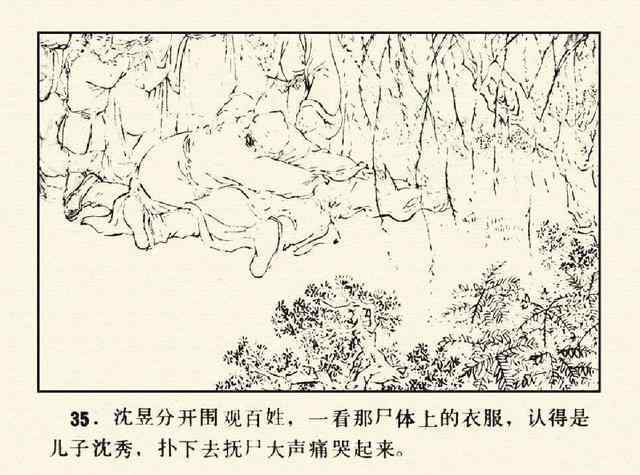 35. 沈昱分开围观百姓，一看那尸体上的衣服，认得是
儿子沈秀，扑下去抚尸大声痛哭起来。